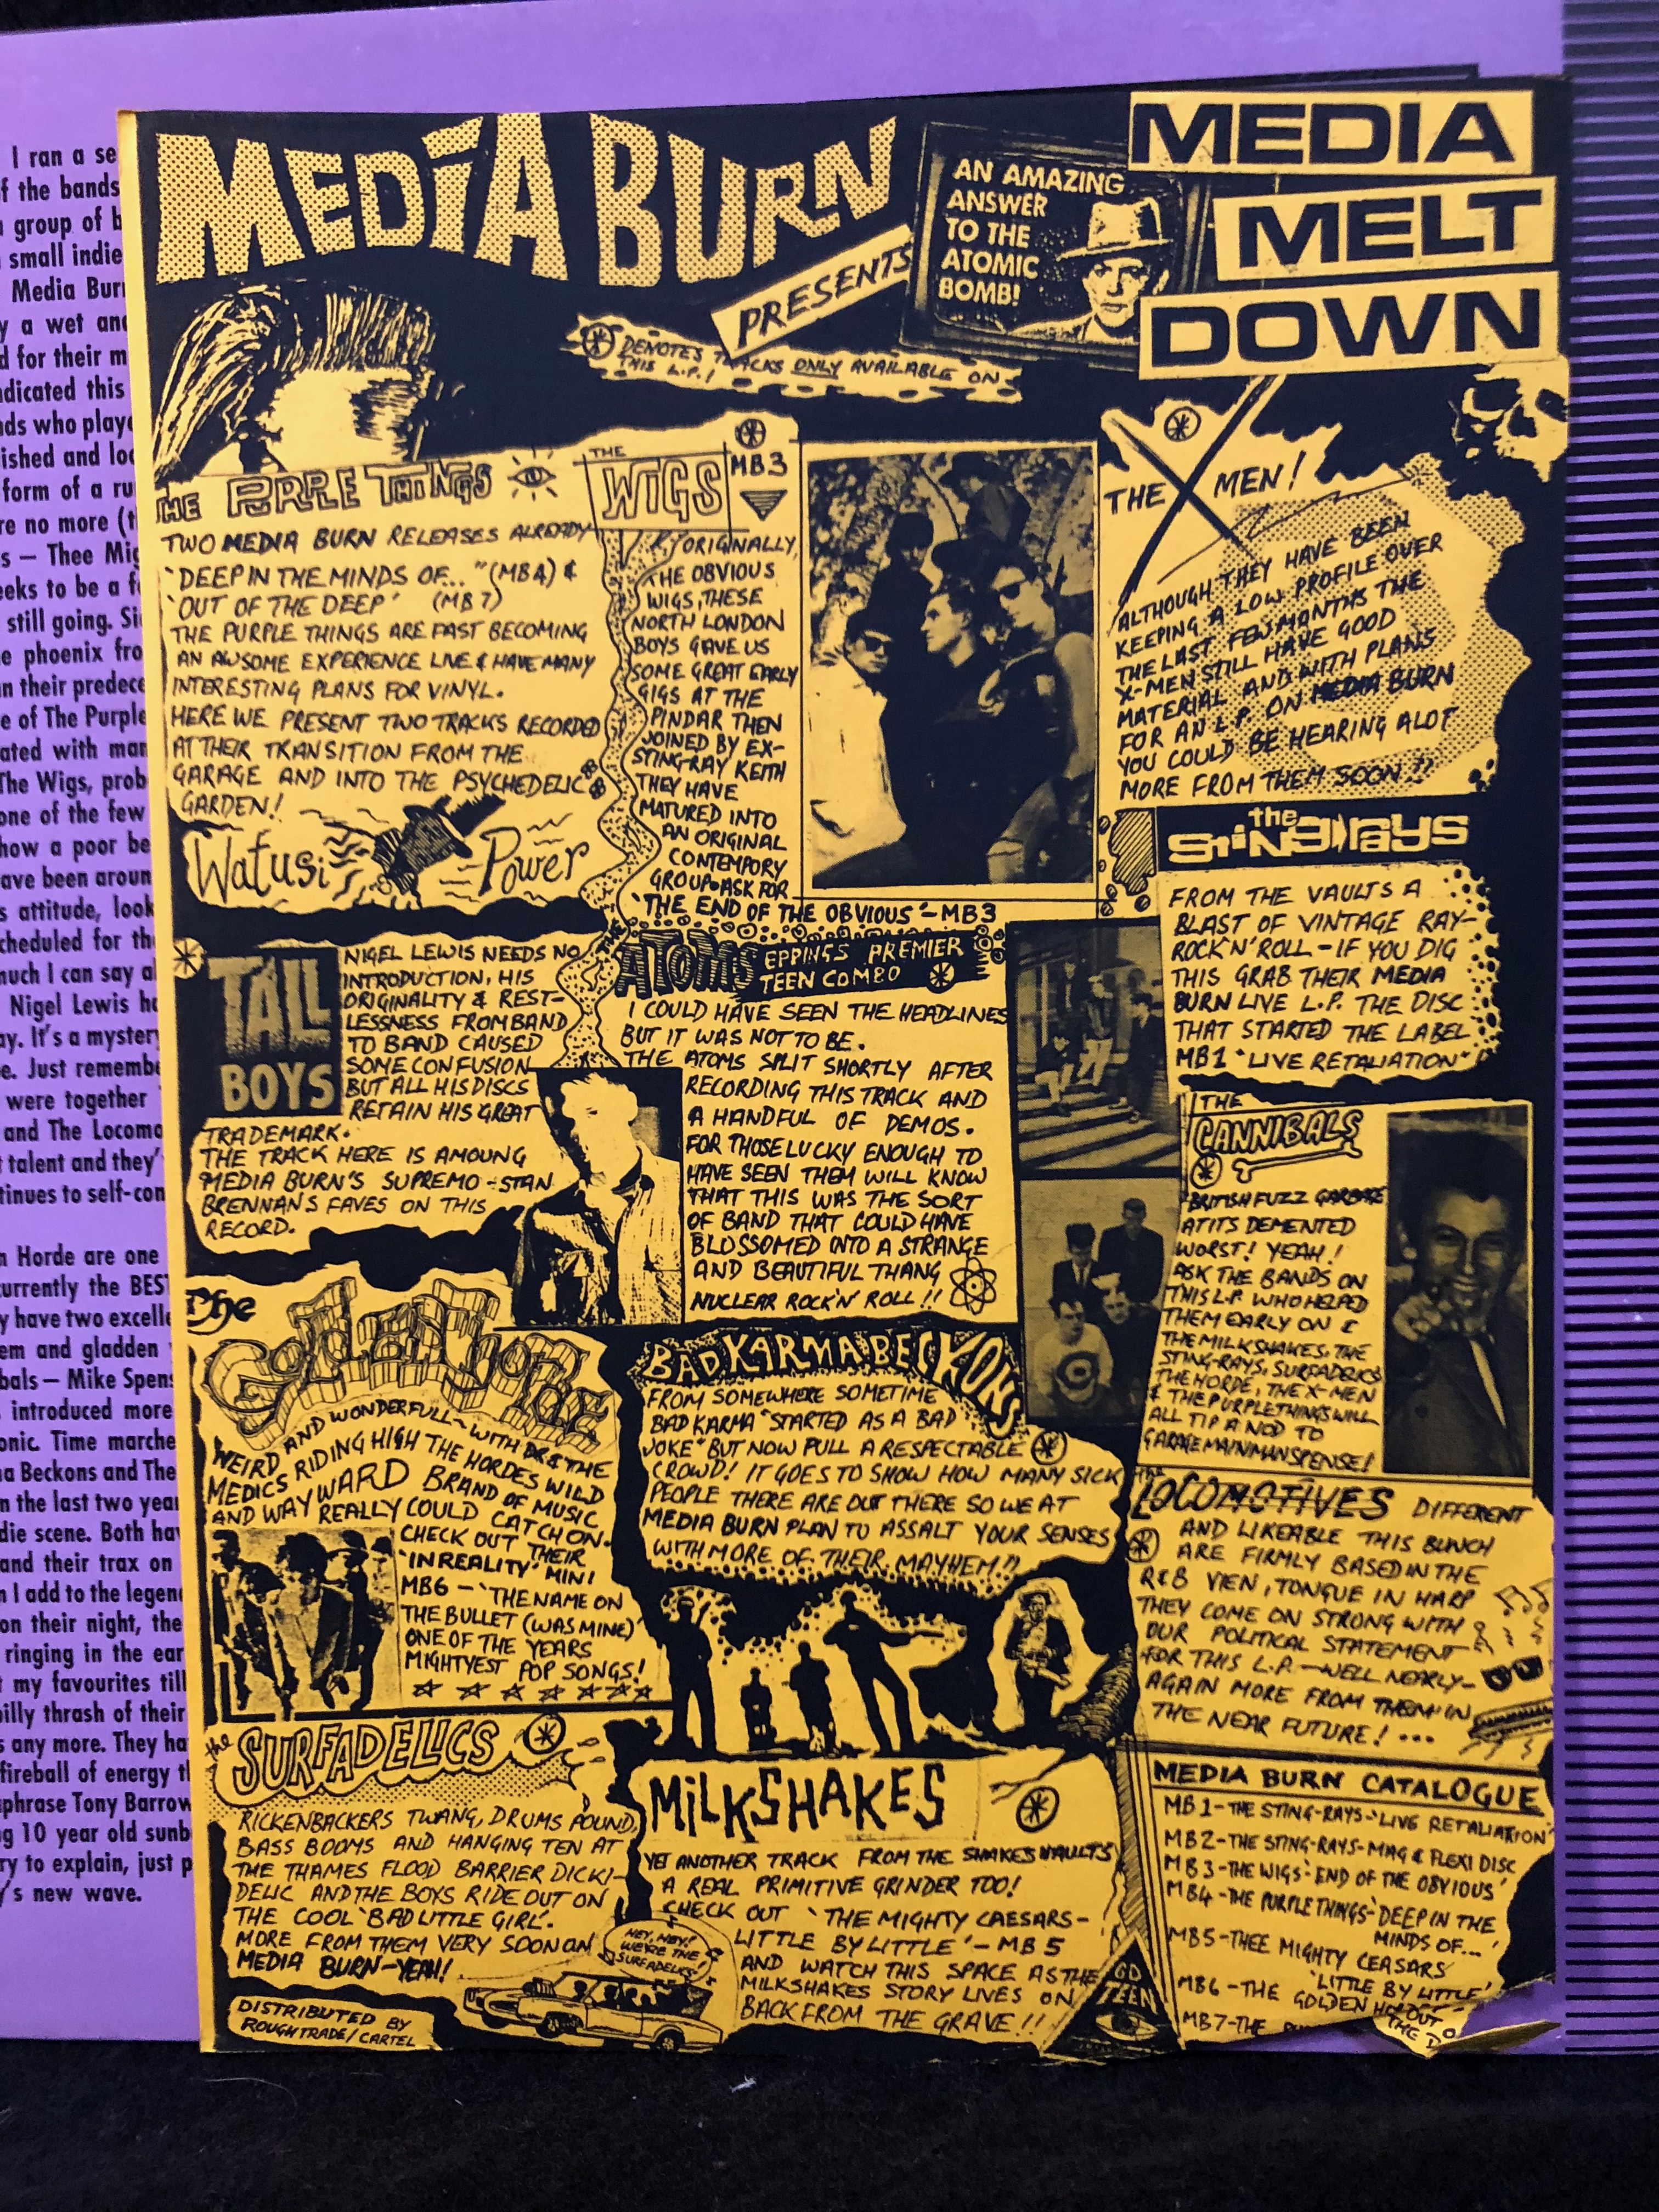 MEDIA BURN
PRESENTS
AN AMAZING
ANSWER
TO THE
ATOMIC
BOMB!
MEDIA
MELT
DOWN
DENOTES TRACKS ONLY AVAILABLE ON
THIS L.P.!
THE PURPLE THINGS
TWO MEDIA BURN RELEASES ALREADY
"DEEP IN THE MINDS OF..." (MB4) &
'OUT OF THE DEEP' (MB7)
THE PURPLE THINGS ARE FAST BECOMING
AN AWSOME EXPERIENCE LIVE & HAVE MANY
INTERESTING PLANS FOR VINYL.
HERE WE PRESENT TWO TRACKS RECORDED
AT THEIR TRANSITION FROM THE
GARAGE AND INTO THE PSYCHEDELIC
GARDEN!
Watusi Power
THE
WIGS
MB3
ORIGINALLY,
THE OBVIOUS
WIGS, THESE
NORTH LONDON
BOYS GAVE US
SOME GREAT EARLY
GIGS AT THE
PINDAR THEN
JOINED BY EX-
STING-RAY KEITH
THEY HAVE
MATURED INTO
AN ORIGINAL
CONTEMPORY
GROUP. ASK FOR
'THE END OF THE OBVIOUS'-MB3
THE X MEN!
ALTHOUGH THEY HAVE BEEN
KEEPING A LOW PROFILE OVER
THE LAST FEW MONTHS THE
X-MEN STILL HAVE GOOD
MATERIAL AND WITH PLANS
FOR AN L.P. ON MEDIA BURN
YOU COULD BE HEARING ALOT
MORE FROM THEM SOON!!
the
STiNGrays
FROM THE VAULTS A
BLAST OF VINTAGE RAY-
ROCK'N'ROLL - IF YOU DIG
THIS GRAB THEIR MEDIA
BURN LIVE L.P. THE DISC
THAT STARTED THE LABEL
MB1 "LIVE RETALIATION"
TALL
BOYS
NIGEL LEWIS NEEDS NO
INTRODUCTION, HIS
ORIGINALITY & REST-
LESSNESS FROM BAND
TO BAND CAUSED
SOME CONFUSION
BUT ALL HIS DISCS
RETAIN HIS GREAT
TRADEMARK.
THE TRACK HERE IS AMOUNG
MEDIA BURN'S SUPREMO - STAN
BRENNANS FAVES ON THIS
RECORD.
THE
ATOMS EPPINGS PREMIER
TEEN COMBO
I COULD HAVE SEEN THE HEADLINES
BUT IT WAS NOT TO BE.
THE ATOMS SPLIT SHORTLY AFTER
RECORDING THIS TRACK AND
A HANDFUL OF DEMOS.
FOR THOSE LUCKY ENOUGH TO
HAVE SEEN THEM WILL KNOW
THAT THIS WAS THE SORT
OF BAND THAT COULD HAVE
BLOSSOMED INTO A STRANGE
AND BEAUTIFUL THANG
NUCLEAR ROCK'N ROLL!!
THE
CANNIBALS
BRITISH FUZZ GARBAGE
AT ITS DEMENTED
WORST! YEAH!
ASK THE BANDS ON
THIS L.P. WHO HELPED
THEM EARLY ON &
THE MILKSHAKES, THE
STING-RAYS, SURFADELICS
THE HORDE, THE X-MEN
& THE PURPLE THINGS WILL
ALL TIP A NOD TO
GARAGE MAINMAN SPENSE!
The
Golden Horde
WEIRD AND WONDERFULL - WITH DR & THE
MEDICS RIDING HIGH THE HORDES WILD
AND WAYWARD BRAND OF MUSIC
REALLY COULD CATCH ON.
CHECK OUT THEIR
'IN REALITY' MINI
MB6 - 'THE NAME ON
THE BULLET (WAS MINE)'
ONE OF THE YEARS
MIGHTYEST POP SONGS!
BAD KARMA BECKONS
FROM SOMEWHERE SOMETIME
BAD KARMA "STARTED AS A BAD
JOKE" BUT NOW PULL A RESPECTABLE
CROWD! IT GOES TO SHOW HOW MANY SICK
PEOPLE THERE ARE OUT THERE SO WE AT
MEDIA BURN PLAN TO ASSALT YOUR SENSES
WITH MORE OF THEIR MAYHEM!!
THE
LOCOMOTIVES DIFFERENT
AND LIKEABLE THIS BUNCH
ARE FIRMLY BASED IN THE
R&B VIEN, TONGUE IN HARP
THEY COME ON STRONG WITH
OUR POLITICAL STATEMENT
FOR THIS L.P. - WELL NEARLY -
AGAIN MORE FROM THEM IN
THE NEAR FUTURE! ...
the
SURFADELICS
RICKENBACKERS TWANG, DRUMS POUND,
BASS BOOMS AND HANGING TEN AT
THE THAMES FLOOD BARRIER DICKI-
DELIC AND THE BOYS RIDE OUT ON
THE COOL 'BAD LITTLE GIRL'.
MORE FROM THEM VERY SOON ON
MEDIA BURN-YEAH!
HEY, HEY!
WE'RE THE
SURFADELICS!
DISTRIBUTED BY
ROUGH TRADE/CARTEL
MiLKSHAKES
YET ANOTHER TRACK FROM THE SHAKES VAULTS
A REAL PRIMITIVE GRINDER TOO!
CHECK OUT 'THE MIGHTY CAESARS-
LITTLE BY LITTLE' - MB5
AND WATCH THIS SPACE AS THE
MILKSHAKES STORY LIVES ON
BACK FROM THE GRAVE!!
GO
TEEN
MEDIA BURN CATALOGUE
MB1-THE STING-RAYS-'LIVE RETALIATION'
MB2-THE STING-RAYS-MAG & FLEXI DISC
MB3-THE WIGS-'END OF THE OBVIOUS'
MB4-THE PURPLE THINGS-'DEEP IN THE
MINDS OF...'
MB5-THEE MIGHTY CEASARS
'LITTLE BY LITTLE'
MB6-THE GOLDEN
MB7-THE
I ran a se
f the bands
group of b
small indie
Media Bur
y a wet and
d for their m
dicated this
ds who play
ished and lo
form of a ru
re no more (t
s — Thee Mig
eeks to be a f
still going. Si
e phoenix fro
n their predece
e of The Purple
ated with man
The Wigs, prob
one of the few
how a poor be
ave been aroun
s attitude, look
cheduled for th
much I can say a
Nigel Lewis ha
ay. It's a mystery
e. Just remembe
were together
and The Locomo
t talent and they'
tinues to self-con
n Horde are one
currently the BEST
y have two excelle
em and gladden
bals — Mike Spens
introduced more
onic. Time marche
a Beckons and The
n the last two year
die scene. Both hav
and their trax on
n I add to the legend
on their night, the
ringing in the ear
t my favourites till
billy thrash of their
s any more. They ha
fireball of energy t
phrase Tony Barrow
g 10 year old sunb
ry to explain, just p
y's new wave.